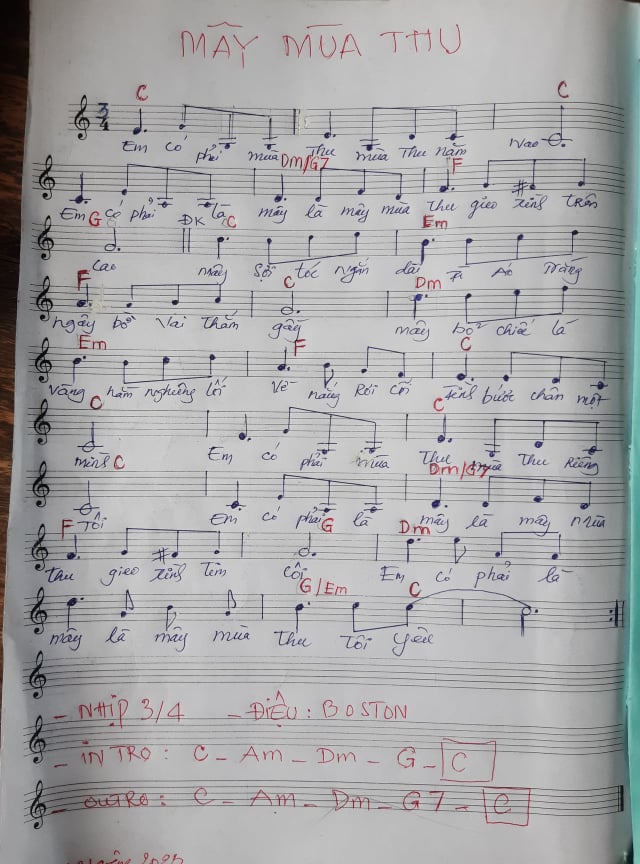 MÂY MÙA THU
C C
3/4
Em có phải mùa Thu mùa Thu năm Nào
Dm/G7 F
Em có phải là mây là mây mùa thu gieo xinh trên
G ĐK C Em
cao mây sợi tóc ngắn dài Tì Áo Trắng
F C Dm
ngây bởi Vai Thắm gầy mây bở chiếc lá
Em F C
Vàng nằm nghiêng lối Về nắng Rơi cõi Tênh bước chân một
C C
mình Em có phải mùa Thu mùa Thu Riêng
C Dm/G7
Tôi Em có phải là mây là mây mùa
F G Dm
thu gieo xinh Tim Côi Em có phải là
G/Em C
mây là mây mùa Thu Tôi Yêu
- NHỊP 3/4 - ĐIỆU: BOSTON
- INTRO: C - Am - Dm - G - C
- OUTRO: C - Am - Dm - G7 - C